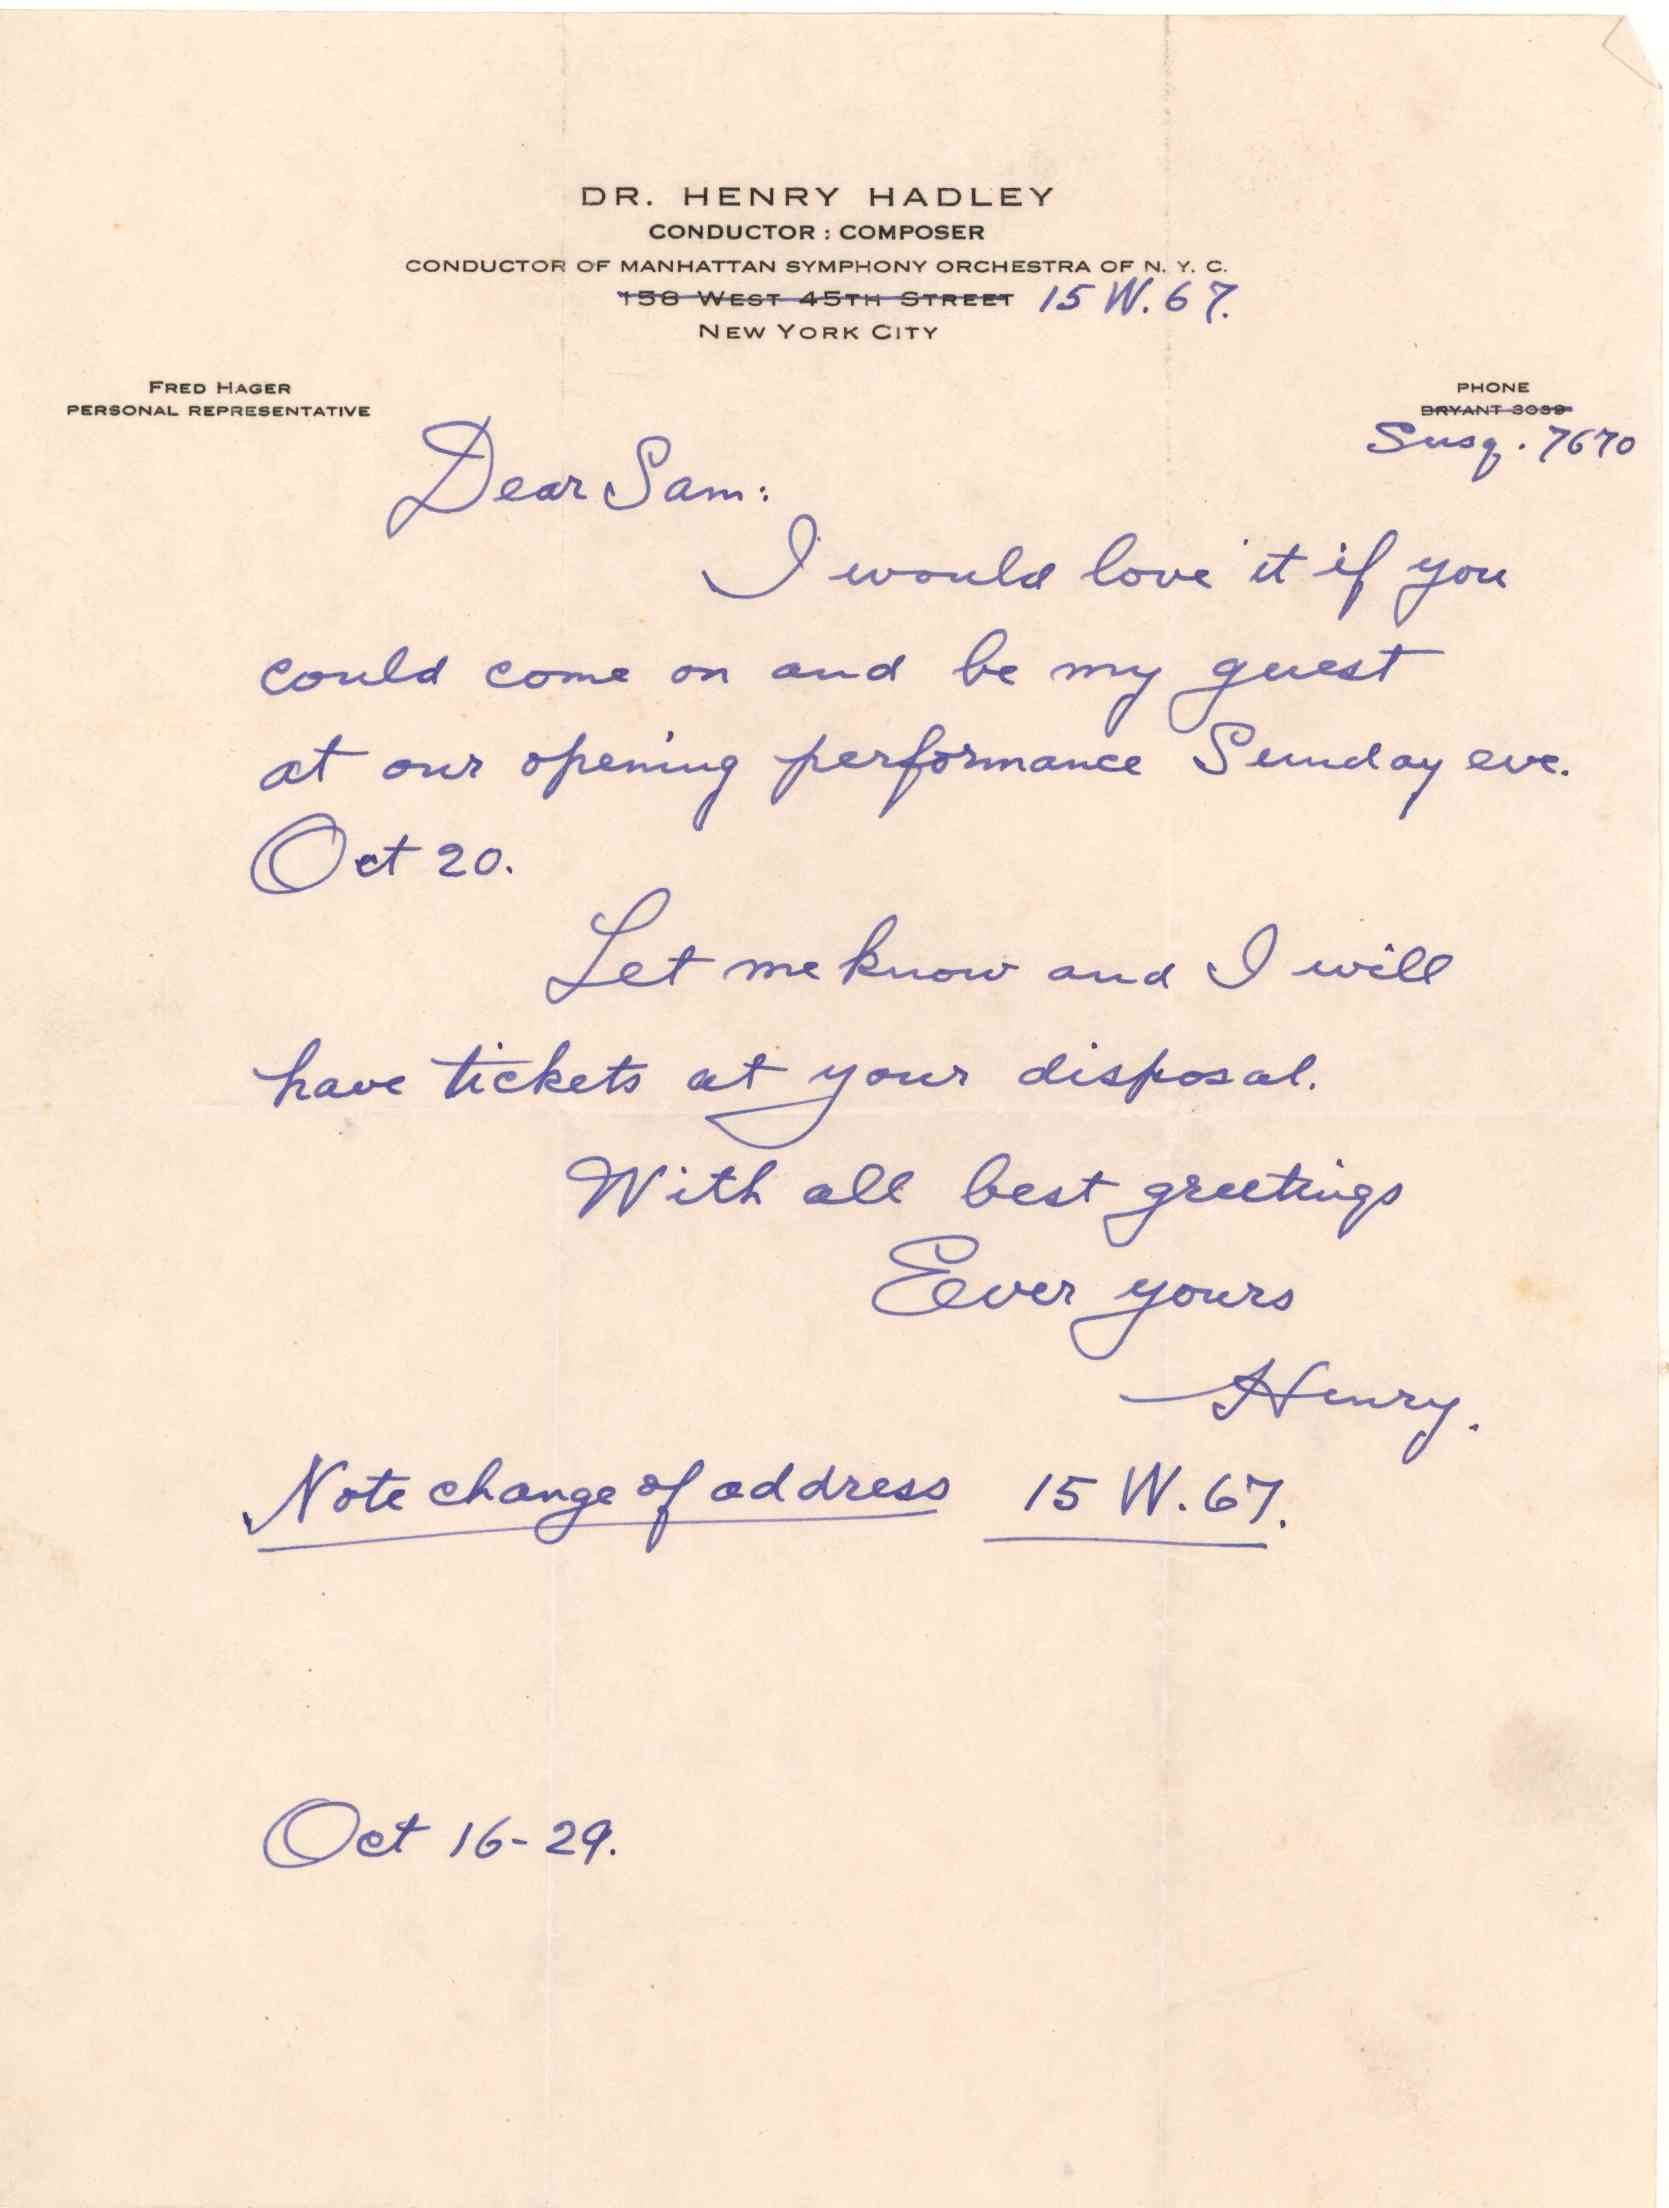 DR. HENRY HADLEY
CONDUCTOR : COMPOSER
CONDUCTOR OF MANHATTAN SYMPHONY ORCHESTRA OF N. Y. C.
158 WEST 45TH STREET 15 W. 67.
NEW YORK CITY
FRED HAGER
PERSONAL REPRESENTATIVE
PHONE
BRYANT 3039
Susq. 7670
Dear Sam:
I would love it if you
could come on and be my guest
at our opening performance Sunday eve.
Oct 20.
Let me know and I will
have tickets at your disposal.
With all best greetings
Ever yours
Henry.
Note change of address 15 W. 67.
Oct 16-29.